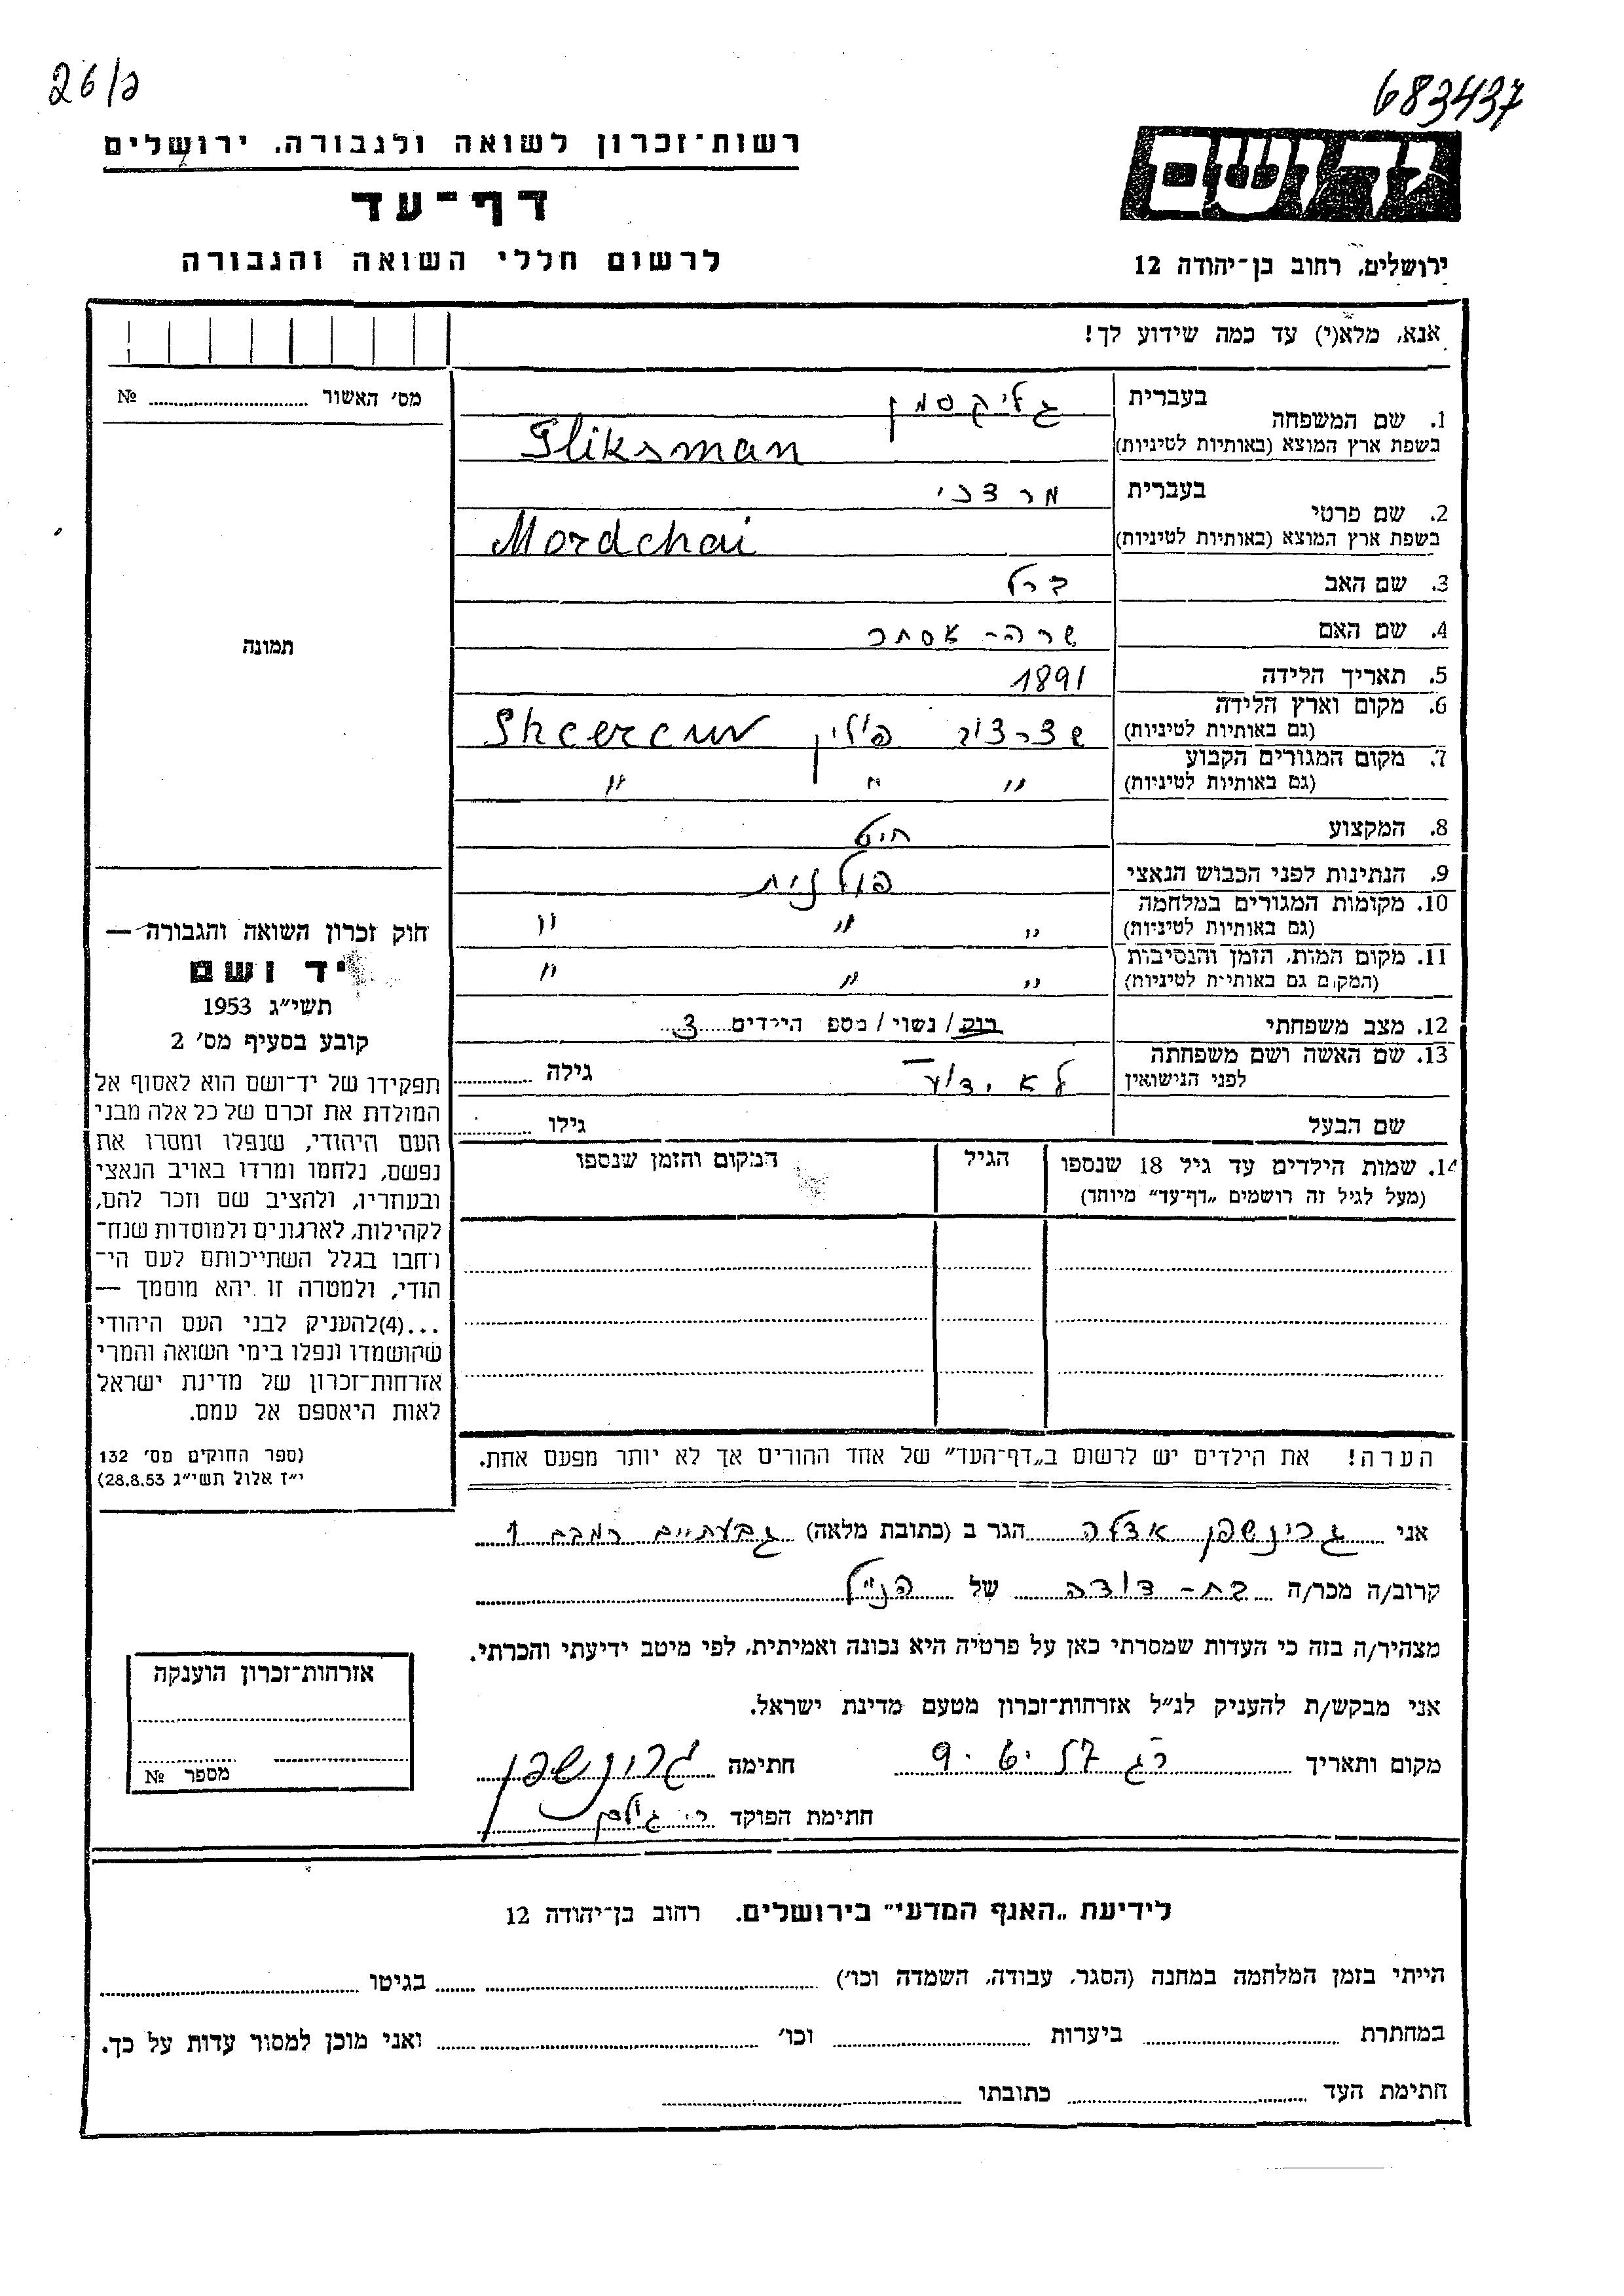 26/ג
683437
רשות־זכרון לשואה ולגבורה, ירושלים
דף־עד
לרשום חללי השואה והגבורה
יד ושם
ירושלים, רחוב בן־יהודה 12
אנא, מלא(י) עד כמה שידוע לך!
מס׳ האשור № 
1. שם המשפחה בעברית גליקסמן
בשפת ארץ המוצא (באותיות לטיניות) Gliksman
2. שם פרטי בעברית מרדכי
בשפת ארץ המוצא (באותיות לטיניות) Mordchai
3. שם האב
4. שם האם שרה־אסתר
5. תאריך הלידה 1891
6. מקום וארץ הלידה
(גם באותיות לטיניות) פולין
7. מקום המגורים הקבוע
(גם באותיות לטיניות) " " "
8. המקצוע חיט
9. הנתינות לפני הכבוש הנאצי פולנית
10. מקומות המגורים במלחמה
(גם באותיות לטיניות) " " "
11. מקום המות, הזמן והנסיבות
(המקום גם באותיות לטיניות) " " "
12. מצב משפחתי רוק/נשוי/מספ הילדים 3
13. שם האשה ושם משפחתה
לפני הנישואין לא ידוע גילה
שם הבעל גילו
14. שמות הילדים עד גיל 18 שנספו
(מעל לגיל זה רושמים „דף־עד" מיוחד)
הגיל
המקום והזמן שנספו
הערה! את הילדים יש לרשום ב„דף־העד" של אחד ההורים אך לא יותר מפעם אחת.
תמונה
חוק זכרון השואה והגבורה —
יד ושם
תשי״ג 1953
קובע בסעיף מס׳ 2
תפקידו של יד־ושם הוא לאסוף אל
המולדת את זכרם של כל אלה מבני
העם היהודי, שנפלו ומסרו את
נפשם, נלחמו ומרדו באויב הנאצי
ובעוזריו, ולהציב שם וזכר להם,
לקהילות, לארגונים ולמוסדות שנח־
רחבו בגלל השתייכותם לעם הי־
הודי, ולמטרה זו יהא מוסמך —
...(4)להעניק לבני העם היהודי
שהושמדו ונפלו בימי השואה והמרי
אזרחות־זכרון של מדינת ישראל
לאות היאספם אל עמם.
(ספר החוקים מס׳ 132
י״ז אלול תשי״ג 28.8.53)
אני גרינשפן אדלה הגר ב (כתובת מלאה) גבעתיים רמבם 1
קרוב/ה מכר/ה בת־דודה של הנ״ל
מצהיר/ה בזה כי העדות שמסרתי כאן על פרטיה היא נכונה ואמיתית, לפי מיטב ידיעתי והכרתי.
אני מבקש/ת להעניק לנ״ל אזרחות־זכרון מטעם מדינת ישראל.
מקום ותאריך רג 9.6.57 חתימה גרינשפן
חתימת הפוקד
אזרחות־זכרון הוענקה
מספר №
לידיעת „האגף המדעי" בירושלים. רחוב בן־יהודה 12
הייתי בזמן המלחמה במחנה (הסגר, עבודה, השמדה וכו׳) בגיטו
במחתרת ביערות וכו׳ ואני מוכן למסור עדות על כך.
חתימת העד כתובתו